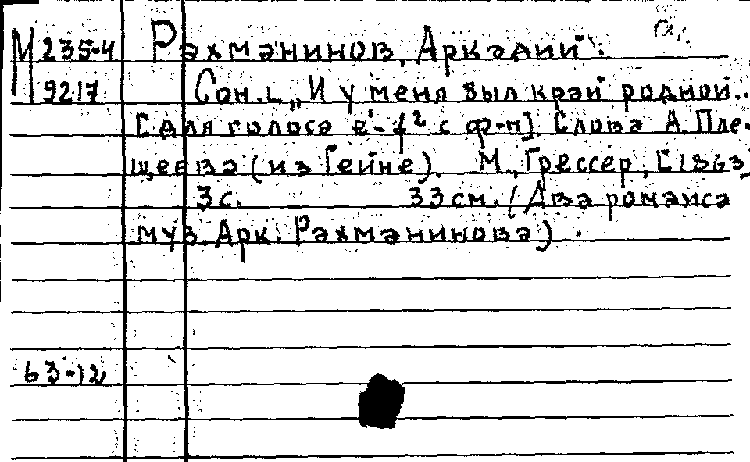 М 235-4 Рахманинов, Аркадий.
9217 Сон. "И у меня был край родной..
[для голоса e'-f² с ф-п]. Слова А. Пле-
щеева (из Гейне). М., Грессер, [1863]
3с. 33см. (Два романса
муз. Арк. Рахманинова).
63-12